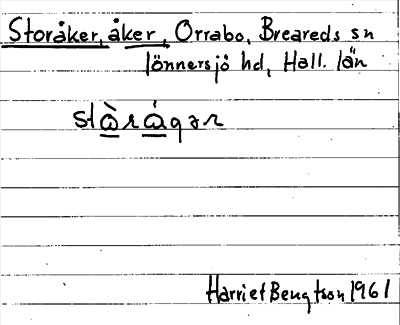 Storåker, åker, Orrabo, Breareds sn
Tönnersjö hd, Hall. län
stꞷ̀rꞷ́gər
Harriet Bengtson 1961